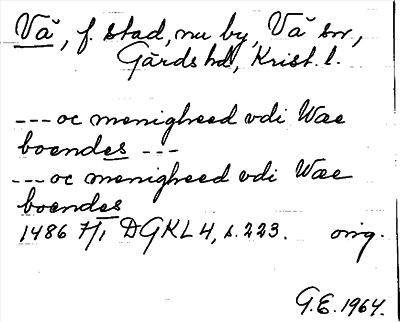 Vä, f. stad, nu by, Vä sn,
Gärds hd, Krist. l.
--- oc menigheed vdi Wae
boendes ---
--- oc menigheed vdi Wae
boendes
1486 7/I DGKL 4, s. 223. orig.
G.E. 1964.